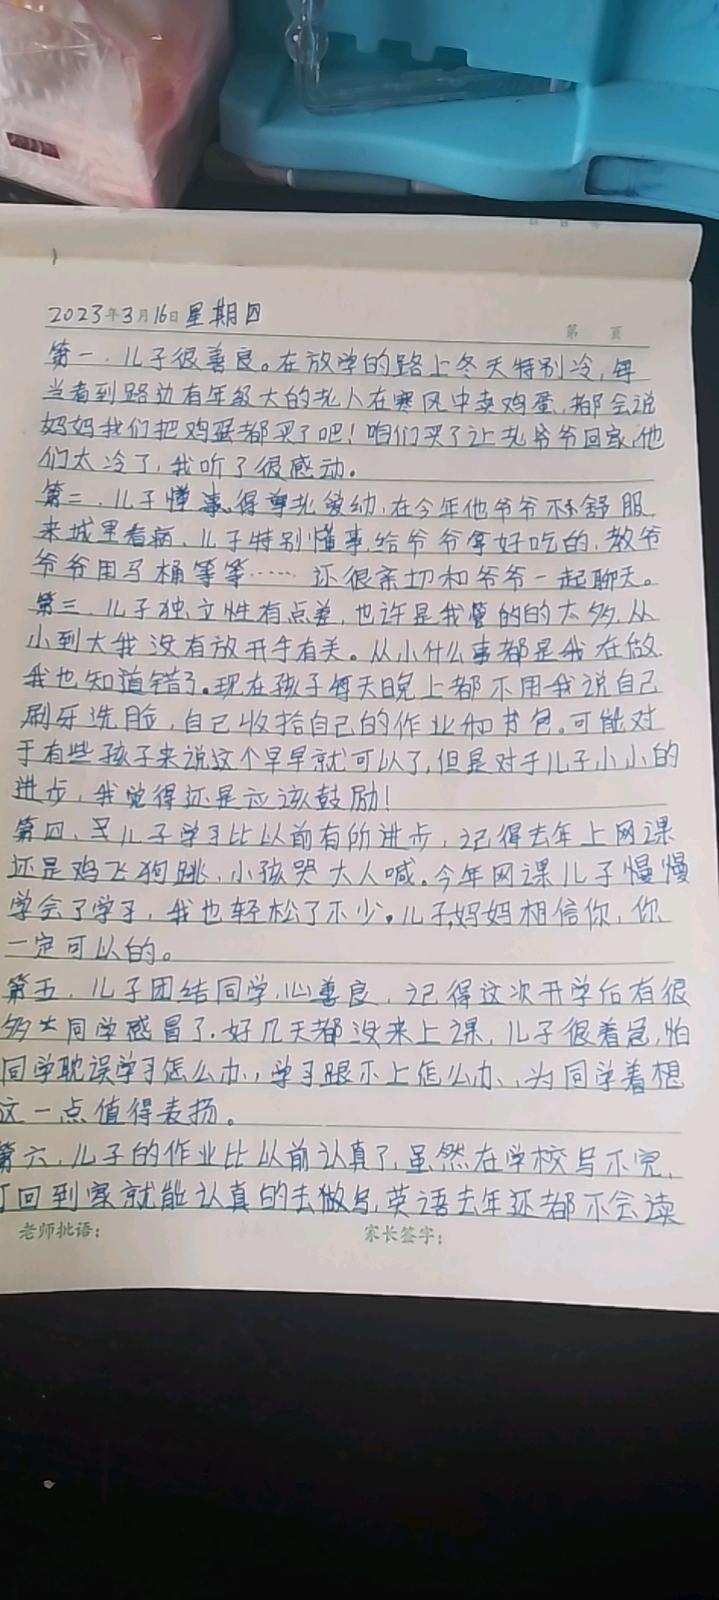 2023年3月16日星期四
第 页
第一、儿子很善良。在放学的路上冬天特别冷,每
当看到路边有年级大的老人在寒风中卖鸡蛋,都会说
妈妈我们把鸡蛋都买了吧!咱们买了让老爷爷回家,他
们太冷了,我听了很感动。
第二、儿子懂事、得尊老爱幼,在今年他爷爷不舒服
来城里看病,儿子特别懂事,给爷爷拿好吃的,教爷
爷爷用马桶等等……还很亲切和爷爷一起聊天。
第三、儿子独立性有点差,也许是我管的的太多,从
小到大我没有放开手有关。从小什么事都是我在做
我也知道错了。现在孩子每天晚上都不用我说自己
刷牙洗脸,自己收拾自己的作业和书包。可能对
于有些孩子来说这个早早就可以了,但是对于儿子小小的
进步,我觉得还是应该鼓励!
第四、儿子学习比以前有所进步,记得去年上网课
还是鸡飞狗跳,小孩哭大人喊。今年网课儿子慢慢
学会了学习,我也轻松了不少。儿子,妈妈相信你,你
一定可以的。
第五、儿子团结同学,心善良,记得这次开学后有很
多同学感冒了,好几天都没来上课,儿子很着急,怕
同学耽误学习怎么办,学习跟不上怎么办、为同学着想
这一点值得表扬。
第六、儿子的作业比以前认真了,虽然在学校写不完,
回到家就能认真的去做写,英语去年还都不会读
老师批语: 家长签字: